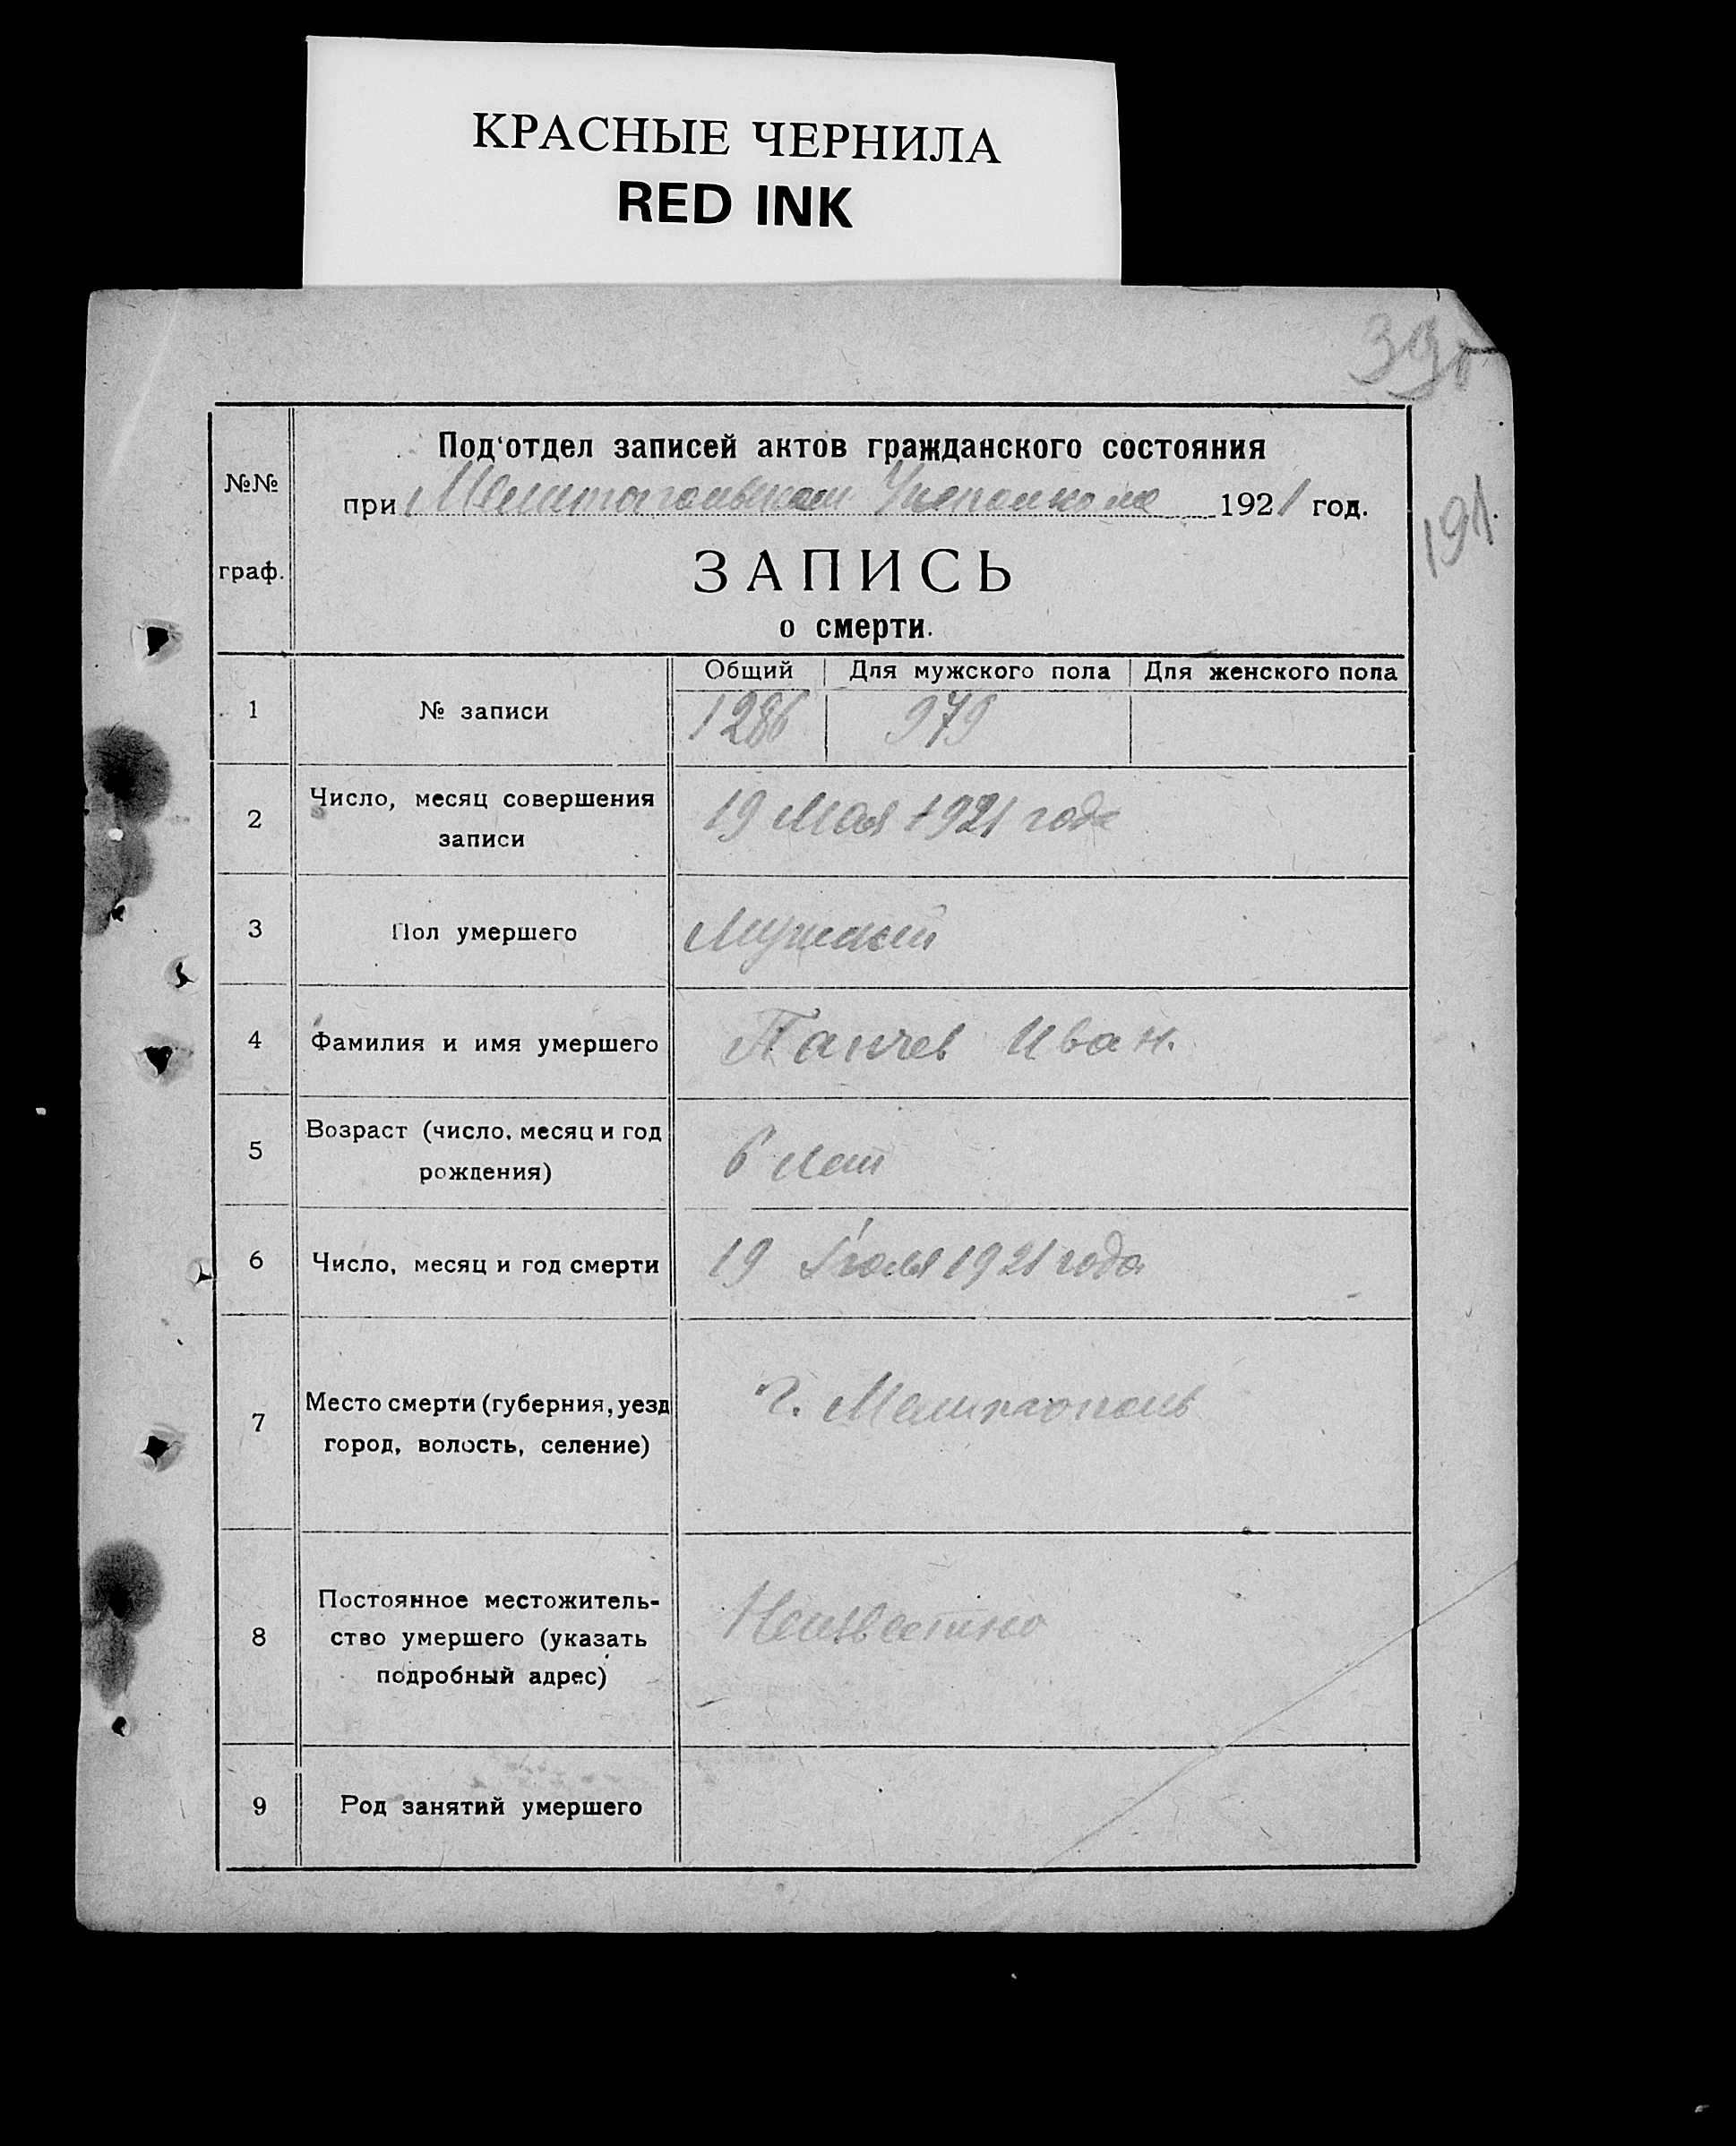 КРАСНЫЕ ЧЕРНИЛА
RED INK
Под'отдел записей актов гражданского состояния
№№
при Мелитопольском 1921 год.
191.
граф.
ЗАПИСЬ
о смерти.
Общий Для мужского пола Для женского пола
1 № записи 1286 979
2 Число, месяц совершения
записи
19 Мая 1921 года
3 Пол умершего Мужской
4 Фамилия и имя умершего Панчев Иван.
5 Возраст (число, месяц и год
рождения)
6 лет
6 Число, месяц и год смерти 19 Июля 1921 года
7 Место смерти (губерния, уезд
город, волость, селение)
г. Мелитополь
8 Постоянное местожитель-
ство умершего (указать
подробный адрес)
Неизвестно
9 Род занятий умершего